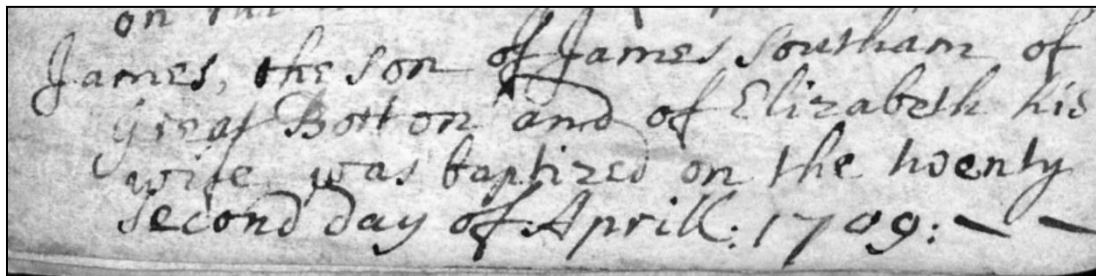 on the
James, the son of James Southam of
Great Botton and of Elizabeth his
wife was baptized on the twenty
second day of Aprill: 1709: